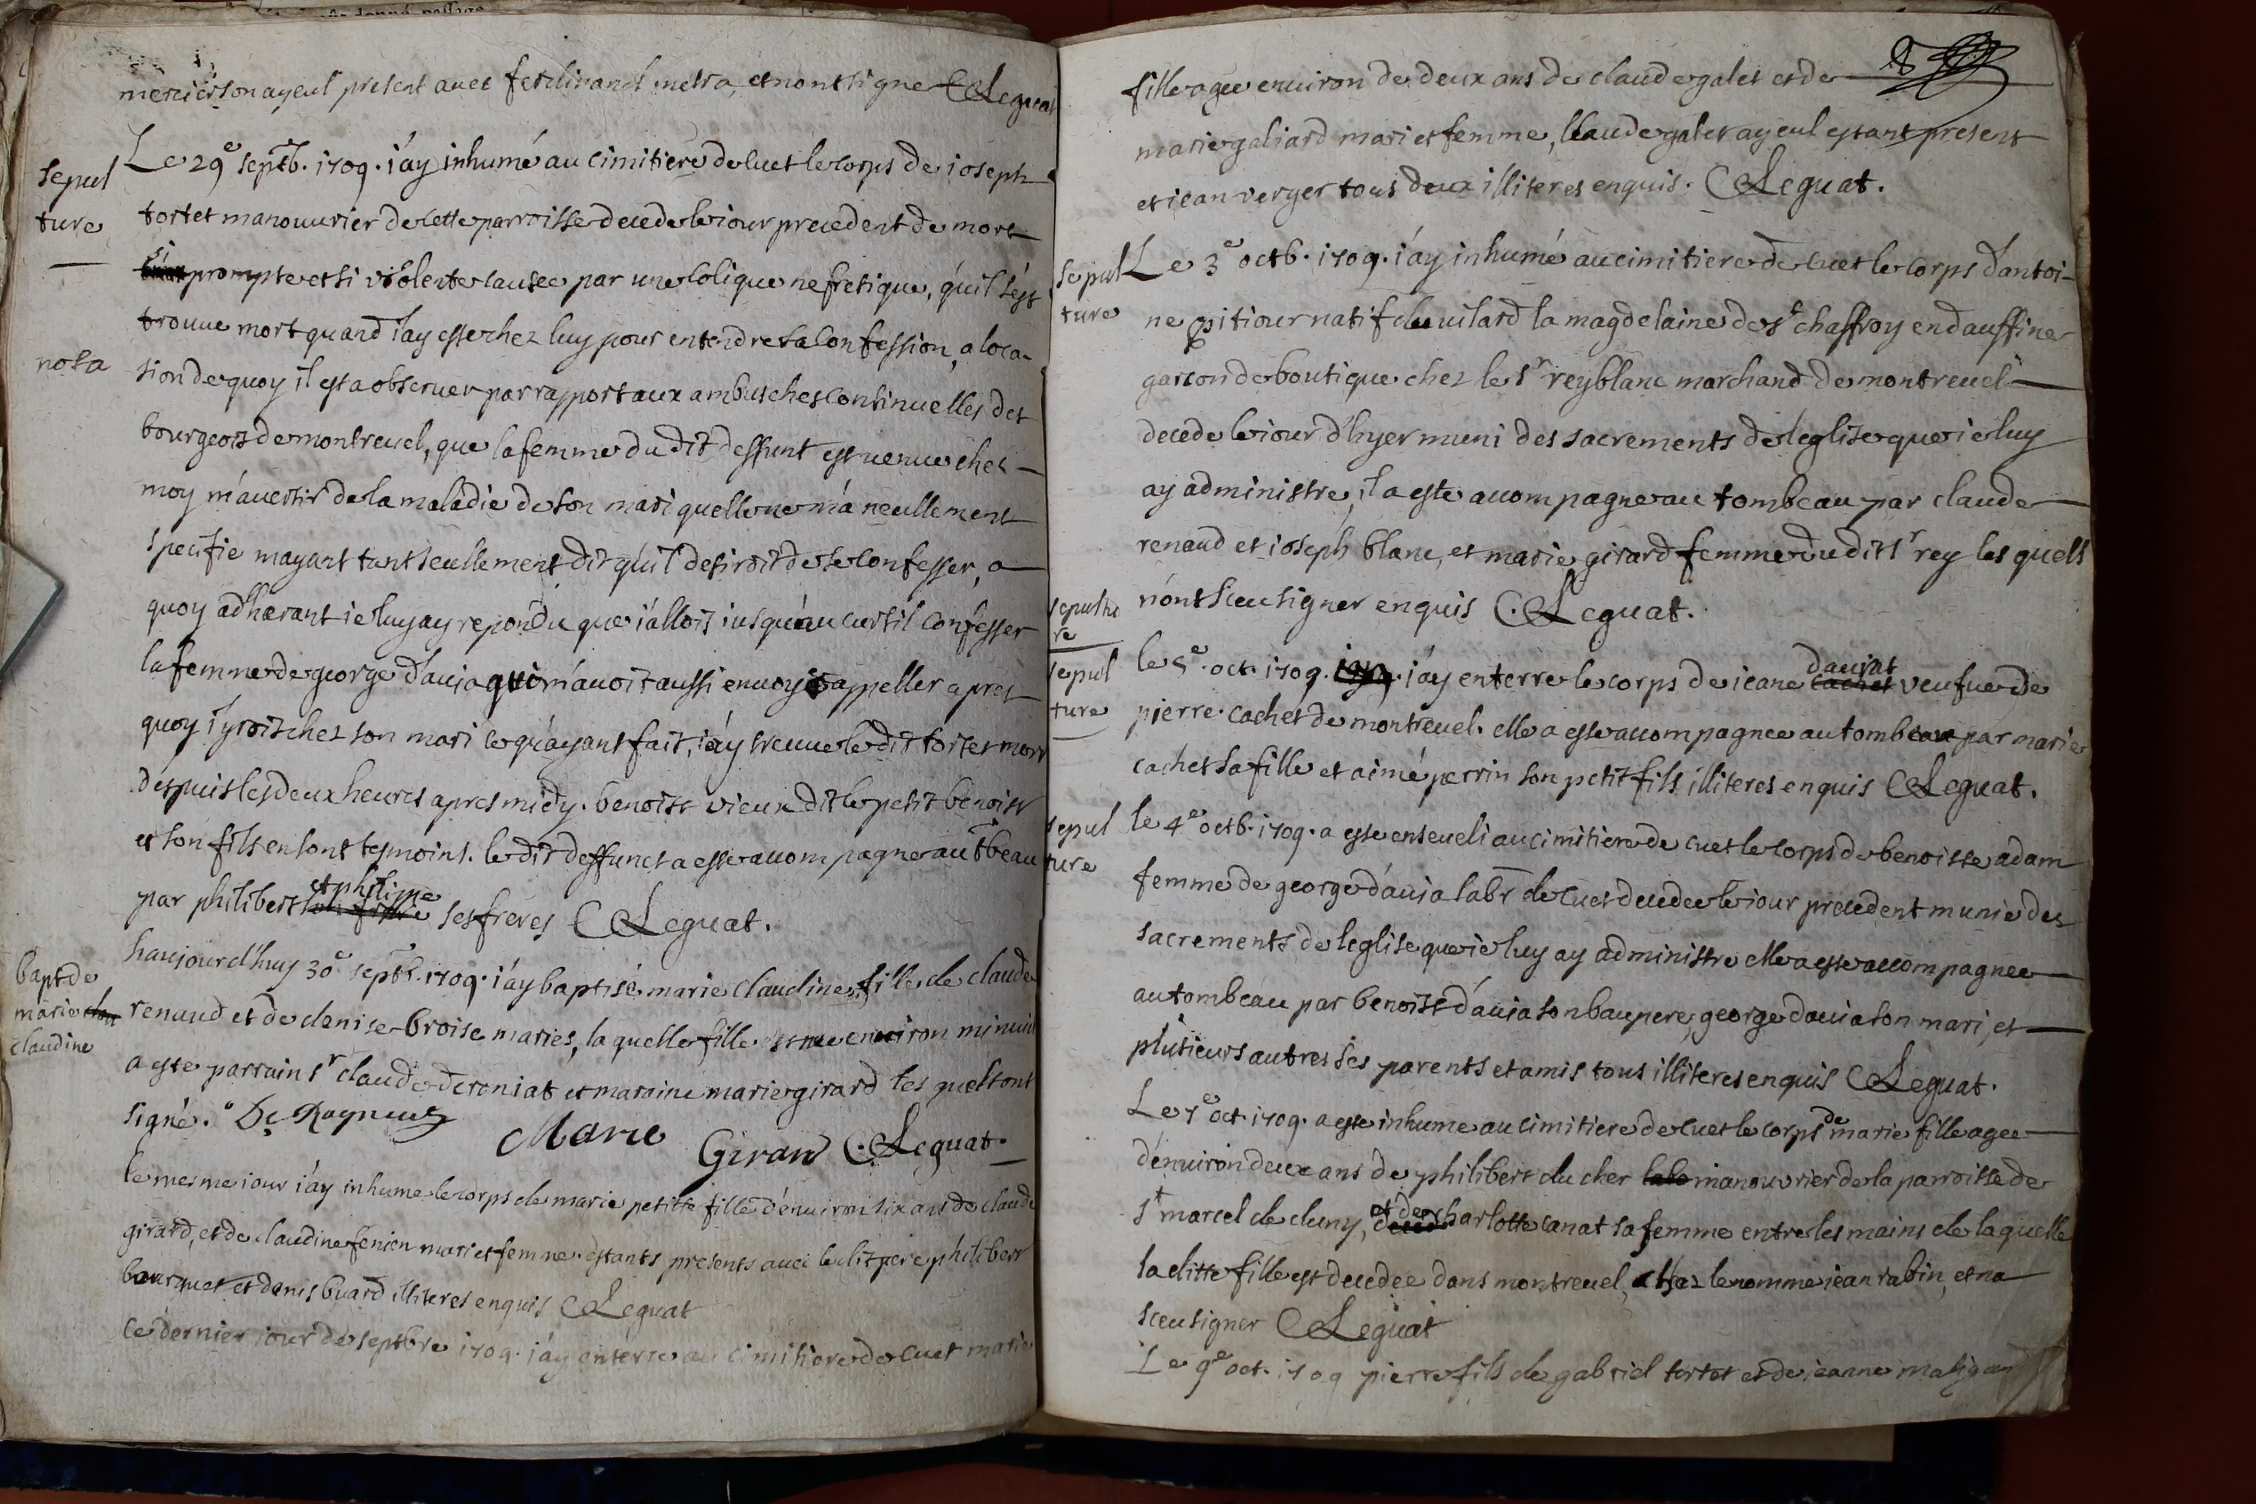 mercier son ayeul present avec ferdinand metra, et n'ont signe C Leguat
sepul
ture
Le 29e septb. 1709. i'ay inhumé au cimitiere de cuet le corps de ioseph
tortet manouvrier de cette parroisse decede le iour precedent de mort
si prompte et si violente causee par une colique nefretique, qu'il s'est
trouve mort quand i'ay esté chez luy pour entendre sa confession, a loca-
nota
sion de quoy il est a observer par rapport aux ambusches continuelles des
bourgeois de montrevel, que la femme du dit deffunt est venue chez
moy m'avertir de la maladie de son mari quelle ne m'a neullement
specifie mayant tant seullement dit qu'il desiroit de se confesser, a
quoy adherant ie luy ay repondu que i'allois iusqu'au curtil confesser
la femme de george d'auia qui m'avoit aussi envoye appeller apres
quoy iyrois chez son mari ce qu'ayant fait, i'ay treuve le dit tortet mort
despuis les deux heures apres midy. benoist vieux dit le petit benoist
et son fils en sont tesmoins. le dit deffunct a esté accompagne au tbeau
par philibert et philippe ses freres C Leguat.
bapt de
marie clau
claudine
haujourd'huy 30e septb. 1709. i'ay baptisé marie claudine fille de claude
renaud et de denise broise mariés, la quelle fille est nee environ minuit
a este parrain sr claude deroniat et maraine marie girard les quels ont
signé. De Rayneud
Marie Girard C. Leguat.
le mesme iour i'ay inhume le corps de marie petitte fille d'environ six ans de claude
girard, et de claudine fenien mari et femme. estants presents avec le dit pere philibert
bourquet et denis buard illiteres enquis C Leguat
Le dernier iour de septbre 1709. i'ay enterre au cimitiere de cuet marie
8
fille agee environ de deux ans de claude galet et de
marie galiard mari et femme, claude galet ayeul estant present
et iean verger tous deux illiteres enquis. C Leguat.
sepul
ture
Le 3e octb. 1709. i'ay inhumé au cimitiere de cuet le corps d'antoi-
ne pitiour natif du vilard la magdelaine de st chaffroy en dauffine
garcon de boutique chez le sr rey blanc marchand de montrevel
decede le iour d'hyer muni des sacrements de leglise que ie luy
ay administre, il a este accompagne au tombeau par claude
renaud et ioseph blanc, et marie girard femme du dit sr rey les quels
n'ont sceu signer enquis C. Leguat.
sepultu
re
sepul
ture
le 5e. oct. 1709. i'ay enterre le corps de ieane cachet dauiat veufve de
pierre cachet de montrevel. elle a este accompagnee au tombeau par marie
cachet sa fille et aimé perrin son petit fils illiteres enquis C Leguat.
sepul
ture
le 4e octb. 1709. a este enseveli au cimitiere de cuet le corps de benoiste adam
femme de george d'auia labr de cuet decedee le iour precedent munie des
sacrements de leglise que ie luy ay administre elle a este accompagnee
au tombeau par benoist d'auia son beaupere, george dauia son mari, et
plusieurs autres ses parents et amis tous illiteres enquis C Leguat.
Le 7e oct. 1709. a este inhume au cimitiere de cuet le corps de marie fille agee
d'environ deux ans de philibert du cher labo manouvrier de la parroisse de
st marcel de cluny, et de charlotte canat sa femme entre les mains de la quelle
la ditte fille est decedee dans montrevel, chez le nomme iean rabin, et na
sceu signer C Leguat
Le 9e oct. 1709 pierre fils de gabriel tortet et de ieanne